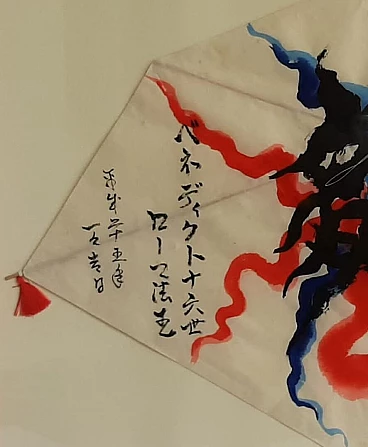 ベネディクト十六世
ローマ法王
平成二十五年
一月吉日